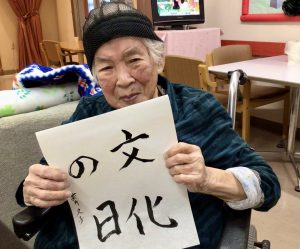 文化
の日